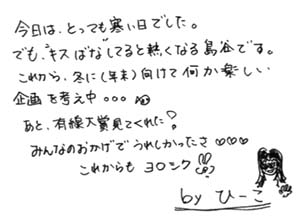 今日は、とっても寒い日でした。
でも、キスばなしてると熱くなる島谷です。
これから、冬に(年末)向けて何か楽しい
企画を考え中。。。
あと、有線大賞見てくれた?
みんなのおかげでうれしかったさ♡♡♡
これからもヨロシク
by ひーこ